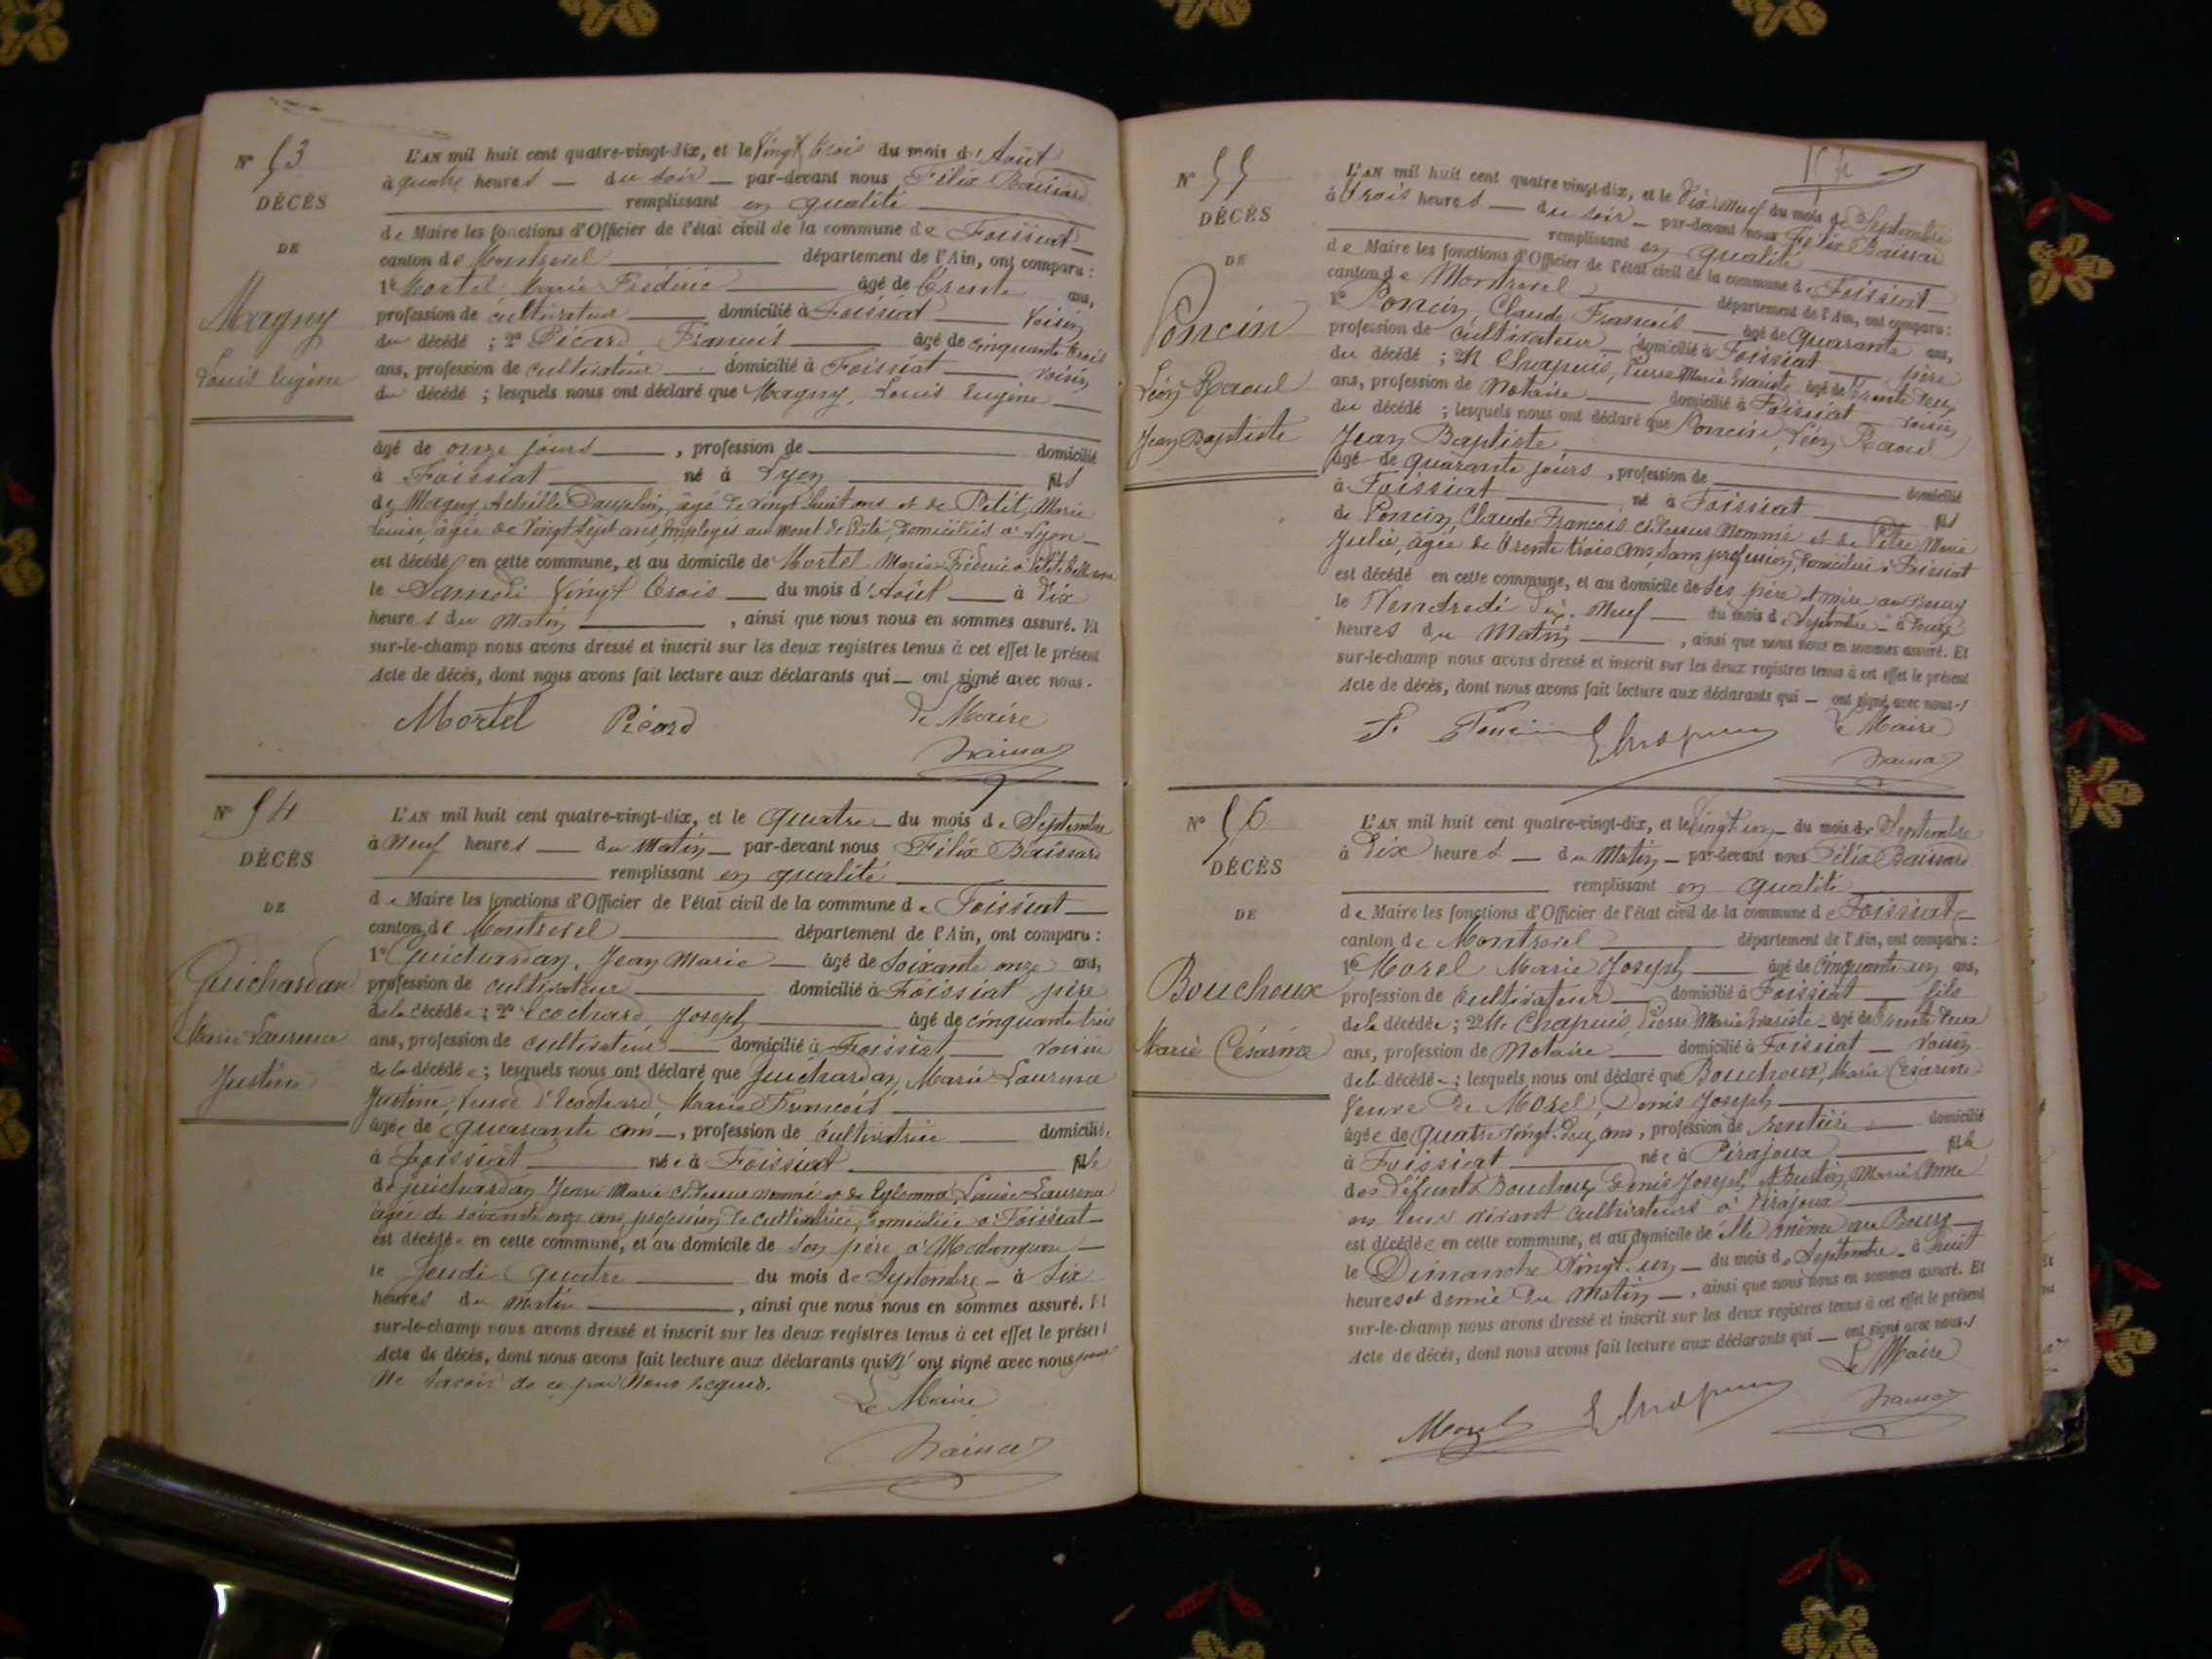 N° 53
DÉCÈS
DE
Magny
Louis Eugène
L'AN mil huit cent quatre-vingt-dix, et le Vingt trois du mois d'Août
à quatre heures — du soir — par-devant nous Félix Baissard
remplissant en qualité
de Maire les fonctions d'Officier de l'état civil de la commune de Foissiat
canton de Montrevel département de l'Ain, ont comparu :
1° Mortel Marie Frédéric âgé de trente ans,
profession de cultivateur domicilié à Foissiat voisin
du décédé ; 2° Picard François âgé de cinquante trois
ans, profession de cultivateur domicilié à Foissiat voisin
du décédé ; lesquels nous ont déclaré que Magny, Louis Eugène
âgé de onze jours , profession de domicilié
à Foissiat né à Lyon fils
de Magny Achille Dauphin, âgé de vingt huit ans et de Petit, Marie
Louise, âgée de Vingt sept ans, employés au mont de Piété, domiciliés à Lyon
est décédé en cette commune, et au domicile de Mortel Marie Frédéric à
le Samedi Vingt trois du mois d'Août à dix
heures du Matin , ainsi que nous nous en sommes assuré. Et
sur-le-champ nous avons dressé et inscrit sur les deux registres tenus à cet effet le présent
Acte de décès, dont nous avons fait lecture aux déclarants qui — ont signé avec nous.
Mortel Picard Le Maire
N° 54
DÉCÈS
DE
Guichardan
Marie Laurence
Justine
L'AN mil huit cent quatre-vingt-dix, et le quatre du mois de Septembre
à Neuf heures — du Matin — par-devant nous Félix Baissard
remplissant en qualité
de Maire les fonctions d'Officier de l'état civil de la commune de Foissiat
canton de Montrevel département de l'Ain, ont comparu :
1° Guichardan, Jean Marie — âgé de Soixante onze ans,
profession de cultivateur domicilié à Foissiat père
de la décédée ; 2° Ecochard Joseph âgé de cinquante trois
ans, profession de cultivateur domicilié à Foissiat voisin
de la décédée ; lesquels nous ont déclaré que Guichardan, Marie Laurence
Justine, Veuve d'Ecochard Marie François
âgée de quarante ans , profession de cultivatrice domiciliée
à Foissiat née à Foissiat fille
de Guichardan Jean Marie ci dessus nommé et de Louise Laurence
âgée de soixante onze ans profession de cultivatrice, domiciliée à Foissiat
est décédée en cette commune, et au domicile de son père, à
le Jeudi quatre du mois de Septembre — à Six
heures du matin , ainsi que nous nous en sommes assuré. Et
sur-le-champ nous avons dressé et inscrit sur les deux registres tenus à cet effet le présent
Acte de décès, dont nous avons fait lecture aux déclarants qui n' ont signé avec nous pour
ne savoir de ce par Nous requis.
Le Maire
N° 55
DÉCÈS
DE
Poncin
Léon Raoul
Jean Baptiste
L'AN mil huit cent quatre-vingt-dix, et le Dix Neuf du mois de Septembre
à trois heures — du soir — par-devant nous Félix Baissard
remplissant en qualité
de Maire les fonctions d'Officier de l'état civil de la commune de Foissiat
canton de Montrevel département de l'Ain, ont comparu :
1° Poncin, Claude François — âgé de quarante ans,
profession de cultivateur domicilié à Foissiat père
du décédé ; 2° M Chapuis, Pierre Marie Evariste âgé de trente deux
ans, profession de Notaire domicilié à Foissiat voisin
du décédé ; lesquels nous ont déclaré que Poncin, Léon Raoul
Jean Baptiste
âgé de quarante jours , profession de domicilié
à Foissiat né à Foissiat fils
de Poncin, Claude François ci dessus Nommé et de Pitre Marie
Julie, âgée de trente trois ans, sans profession, domiciliée à Foissiat
est décédé en cette commune, et au domicile de ses père et mère au Bourg
le Vendredi dix Neuf du mois de Septembre — à onze
heures du Matin , ainsi que nous nous en sommes assuré. Et
sur-le-champ nous avons dressé et inscrit sur les deux registres tenus à cet effet le présent
Acte de décès, dont nous avons fait lecture aux déclarants qui — ont signé avec nous
F. Poncin Le Maire
N° 56
DÉCÈS
DE
Bouchoux
Marie Césarine
L'AN mil huit cent quatre-vingt-dix, et le Vingt un du mois de Septembre
à Dix heures — du Matin — par-devant nous Félix Baissard
remplissant en qualité
de Maire les fonctions d'Officier de l'état civil de la commune de Foissiat
canton de Montrevel département de l'Ain, ont comparu :
1° Morel Marie Joseph âgé de Cinquante un ans,
profession de cultivateur domicilié à Foissiat fils
de la décédée ; 2° M. Chapuis Pierre Marie Evariste âgé de trente deux
ans, profession de Notaire domicilié à Foissiat — Voisin
de la décédée ; lesquels nous ont déclaré que Bouchoux, Marie Césarine
Veuve de Morel, Denis Joseph
âgée de quatre Vingt deux ans, profession de rentière domiciliée
à Foissiat née à Pirajoux fille
des défunts Bouchoux Denis Joseph, & Marie Anne
en leur vivant cultivateurs à Pirajoux
est décédée en cette commune, et au domicile de elle même au Bourg
le Dimanche Vingt un du mois de Septembre — à huit
heures et demie du Matin , ainsi que nous nous en sommes assuré. Et
sur-le-champ nous avons dressé et inscrit sur les deux registres tenus à cet effet le présent
Acte de décès, dont nous avons fait lecture aux déclarants qui — ont signé avec nous
Le Maire
Morel